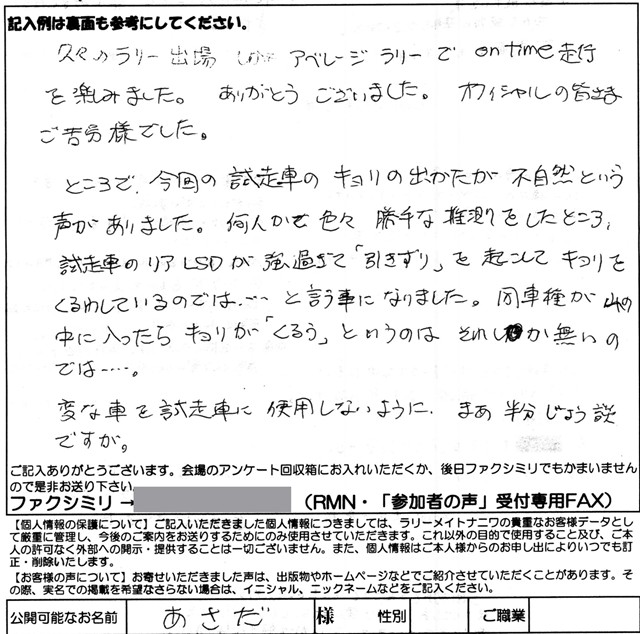 記入例は裏面も参考にしてください。
久々のラリー出場 しかも アベレージ ラリーで on time 走行
を楽しみました。 ありがとう ございました。 オフィシャルの皆さま
ご苦労様でした。
ところで、今回の試走車の キョリの出かたが 不自然という
声がありました。何人かで色々 勝手な推測をしたところ、
試走車のリアLSDが強過ぎて「引きずり」を起こしてキョリを
くるわしているのでは…… と言う事になりました。同車種が山の
中に入ったら キョリが「くるう」というのは それしか無いの
では……。
変な車を試走車に 使用しないように. まあ半分じょう談
ですが。
ご記入ありがとうございます。会場のアンケート回収箱にお入れいただくか、後日ファクシミリでもかまいません
ので是非お送り下さい。
ファクシミリ→ (RMN・「参加者の声」受付専用FAX)
【個人情報の保護について】ご記入いただきました個人情報につきましては、ラリーメイトナニワの貴重なお客様データとし
て厳重に管理し、今後のご案内をお送りするためにのみ使用させていただきます。これ以外の目的で使用すること及び、ご本
人の許可なく外部への開示・提供することは一切ございません。また、個人情報はご本人様からのお申し出によりいつでも訂
正・削除いたします。
【お客様の声について】お寄せいただきました声は、出版物やホームページなどでご紹介させていただくことがあります。そ
の際、実名での掲載を希望なさらない場合は、イニシャル、ニックネームなどをご記入ください。
公開可能なお名前 あさだ 様 性別 ご職業